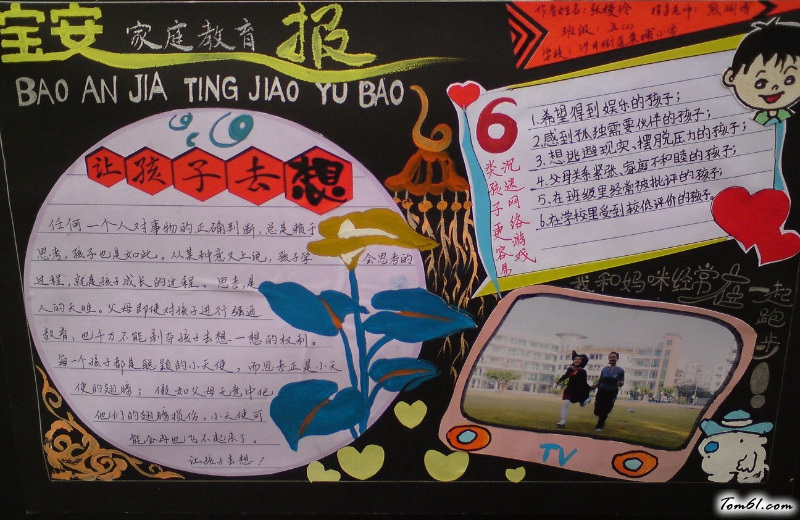 宝安家庭教育报
BAO AN JIA TING JIAO YU BAO
作者姓名：张楼玲 指导老师：熊湘倩
班级：五(2)
学校：沙井街道东塘小学
让孩子去想
任何一个人对事物的正确判断，总是赖于
思考，孩子也是如此。从某种意义上说，孩子学会思考的
过程，就是孩子成长的过程。思考是
人的天性。父母即使对孩子进行强迫
教育，也千万不能剥夺孩子去想一想的权利。
每一个孩子都是聪颖的小天使，而思考正是小天
使的翅膀；假如父母无意中把
他们的翅膀损伤，小天使可
能会再也飞不起来了。
让孩子去想！
6
类孩子更容易
沉迷网络游戏
1.希望得到娱乐的孩子；
2.感到孤独需要伙伴的孩子；
3.想逃避现实、摆脱压力的孩子；
4.父母关系紧张、家庭不和睦的孩子；
5.在班级里经常被批评的孩子；
6.在学校里受到较低评价的孩子。
我和妈咪经常在一起
跑步！
TV
Tom61.com